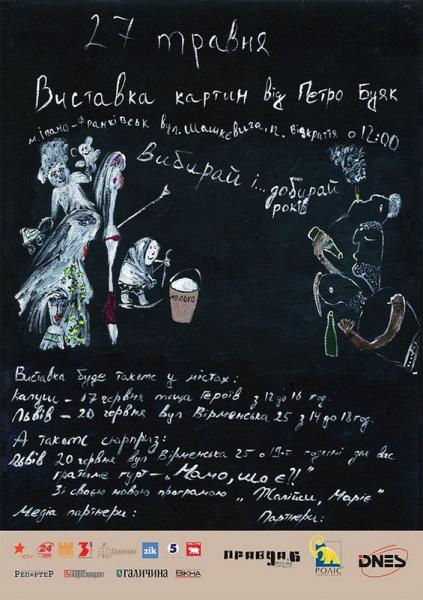 27 травня
Виставка картин від Петро Буяк
м. Івано-Франківськ вул. Шашкевича, Відкриття о 12:00
Вибирай і... добирай
років
МОЛОКО
Виставка буде також у містах:
Калуш - 17 червня площа Героїв з 12 до 16 год.
Львів - 20 червня вул Вірменська 25 з 14 до 18 год.
А також сюрприз:
Львів 20 червня вул Вірменська 25 о 19-т годині для вас
гратиме гурт - „Мамо, що є?!"
Зі своєю новою програмою „
Медіа партнери: Партнери:
ictv 24 3 Галичина zik 5 ПРАВДА.б РОЛІС DNES
РЕПОРТЕР Кореспондент ГАЛИЧИНА ВІКНА